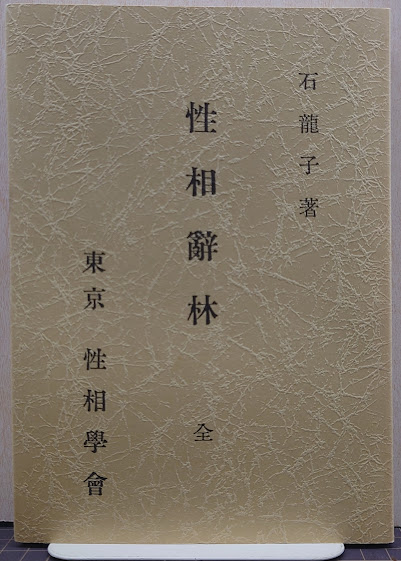 石龍子著
性相辭林 全
東京 性相學會